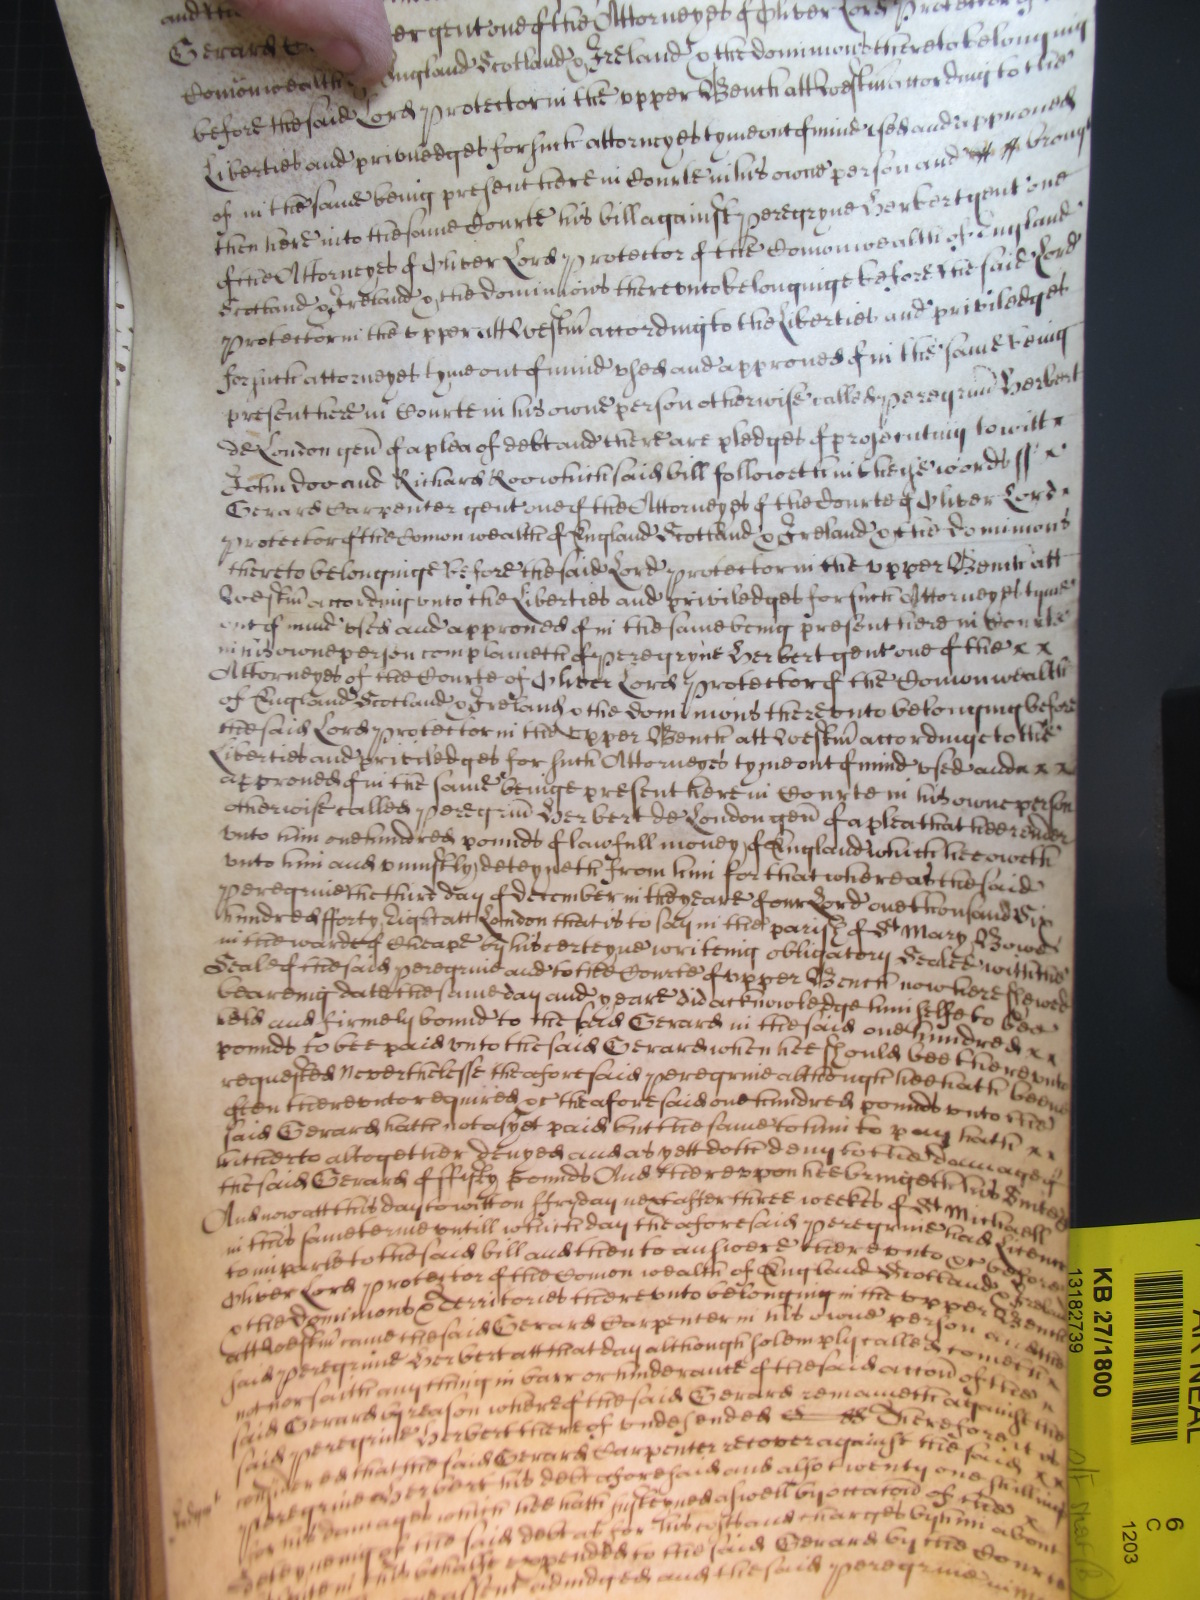 er gent one of the Attorneyes of Oliver Lord Protector of
Gerard
Comonwealth England Scotland & Ireland & the dominions thereto belonging
before the said Lord Protector in the upper Bench att Westm̃ according to the
Liberties and priviledges for such attorneyes tyme out of mind used and approoned
of in the same being present here in Courte in his owne person and brong
then here into the same Courte his bill against Peregryne Herbert gent one
of the Attorneyes of Oliver Lord Protector of the Comonwealth of England
Scotland & Ireland & the dominions thereunto belonginge before the said Lord
Protector in the upper att Westm̃ according to the Liberties and priviledges
for such attorneyes tyme out of mind used and approved of in the same being
present here in Courte in his owne person otherwise called Peregrin̄ Herbert
de London gen̄ of a plea of debt and there are pledges of prosecuting to witt
John Doo and Richard Roo which said bill followeth in these words ss
Gerard Carpenter gent one of the Attorneyes of the Courte of Oliver Lord
Protector of the Comon wealth of England Scotland & Ireland & the dominions
thereto belonginge before the said Lord Protector in the upper Bench att
Westm̃ according unto the Liberties and priviledges for such Attorneyes tyme
out of mind used and approved of in the same being present here in Courte
in his owne person complaineth of Peregryne Herbert gent one of the x x
Attorneyes of the Courte of Oliver Lord Protector of the Comonwealth
of England Scotland & Ireland & the dominions thereunto belonging before
the said Lord Protector in the upper Bench att Westm̃ accordinge to the
Liberties and priviledges for such Attorneyes tyme out of mind used and x x x
approved of in the same beinge present here in Courte in his owne person
otherwise called Peregrin̄ Herbert de London gen̄ of a plea that hee render
unto him one hundred pounds of lawfull money of England which hee oweth
unto him and uniustly deteyneth from him for that whereas the said
Peregrine the third day of December in the yeare of our Lord one thousand six
hundred fforty eight att London that is to say in the parish of St Mary Bowe
in the warde of Cheape by his certeyne writeing obligatory sealed with the
Seale of the said Peregrine and to the Courte of upper Bench now here shewed
beareing date the same day and yeare did acknowledge himselfe to bee
held and firmely bound to the said Gerard in the said one hundred x x
pounds to bee paid unto the said Gerard when hee should bee thereunto
requested Neverthelesse the aforesaid Peregrine although hee hath beene
often thereunto required &c the aforesaid one hundred pounds unto the
said Gerard hath not as yet paid but the same to him to pay hath x x
hitherto altogether denyed and as yett doth deny to the damage of
the said Gerard of ffifty pounds And thereupon hee bringeth his suite &c
And now att this day to witt on ffryday next after three weekes of St Michaell
in this same terme untill which day the aforesaid Peregrine had licence
to imparte to the said bill and then to answere thereunto &c before
Oliver Lord Protector of the Comon wealth of England Scotland & Ireland
& the Dominions & Territories thereunto belonging in the upper Bench
att Westm̃ came the said Gerard Carpenter in his owne person and the
said Peregrine Herbert att that day although solemply called cometh x
not nor saith any thing in barr or hinderance of the said accon̄ of the
said Gerard by reason whereof the said Gerard remaineth against the
said Peregrine Herbert thereof undefended Therefore it is
considered that the said Gerard Carpenter recover against the said x x
Peregrine Herbert his debt aforesaid and also twenty one shillings
for his damages which hee hath susteyned aswell by occation of the x
deteyneing of the said debt as for his costs and charges by him about
his suite in this behalfe expended to the said Gerard by the Courte
assent adiudged and the said Peregrine in m
Judgmt
KB 27/1800
13182739
6
C
1203